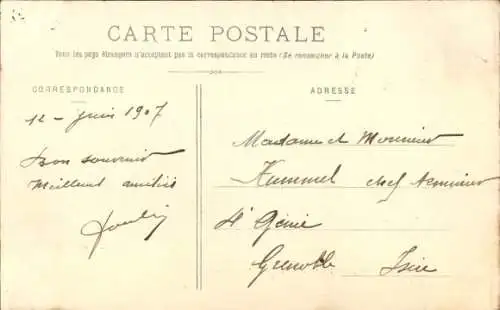 CARTE POSTALE
Tous les pays étrangers n'acceptent pas la correspondance au recto (Se renseigner à la Poste)
CORRESPONDANCE
ADRESSE
12 - juin 1907
Bon souvenir
Meilleurs amitiés
Madame et Monsieur
Kummel chef armurier
4e Génie
Grenoble Isère